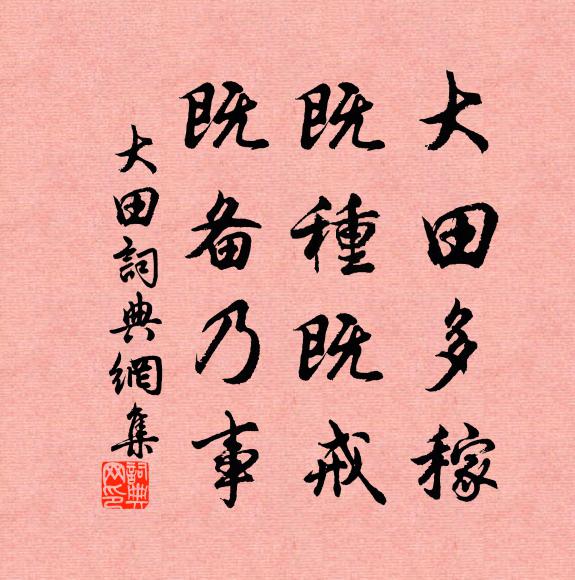 大田多稼
既種既戒
既备乃事
大田詞典網集
詞典
网印